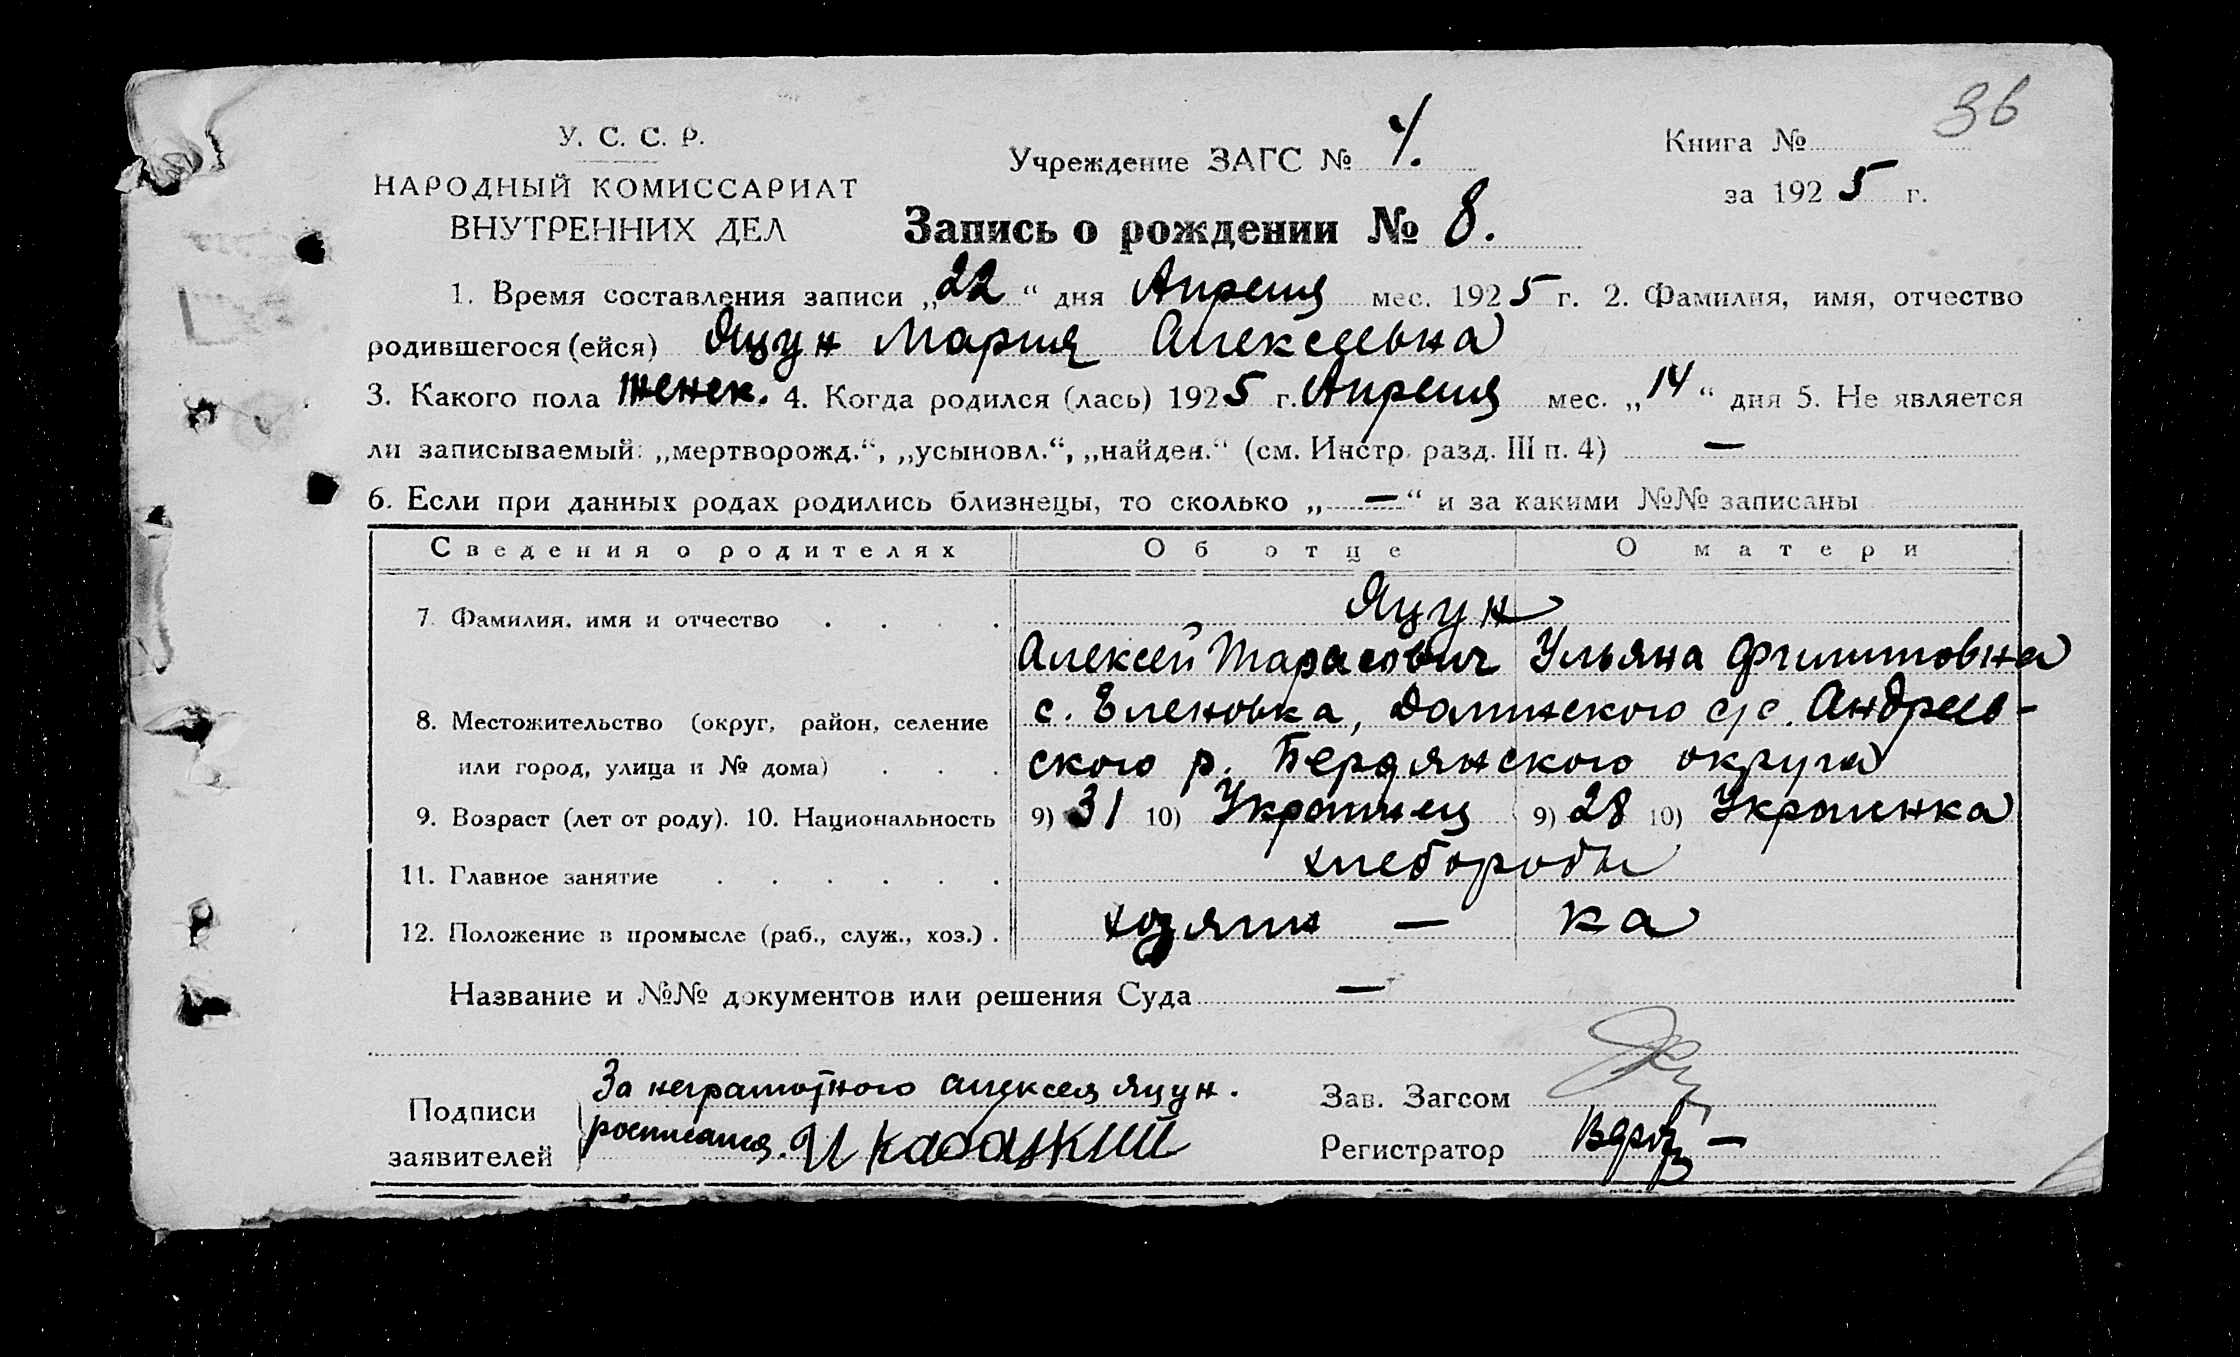 36
У. С. С. Р.
НАРОДНЫЙ КОМИССАРИАТ
ВНУТРЕННИХ ДЕЛ
Учреждение ЗАГС №
Книга №
за 1925 г.
Запись о рождении № 8.
1. Время составления записи „22“ дня Апреля мес. 1925 г. 2. Фамилия, имя, отчество
родившегося (ейся) Яцун Мария Алексеевна
3. Какого пола женск. 4. Когда родился (лась) 1925 г. Апреля мес. „14“ дня 5. Не является
ли записываемый: „мертворожд.“, „усыновл.“, „найден.“ (см. Инстр. разд. III п. 4) —
6. Если при данных родах родились близнецы, то сколько „—“ и за какими №№ записаны
Сведения о родителях Об отце О матери
7. Фамилия, имя и отчество Яцун
Алексей Тарасович Ульяна Филиповна
8. Местожительство (округ, район, селение с. Еленовка, Долинского с/с. Андреев-
или город, улица и № дома) ского р. Бердянского округа
9. Возраст (лет от роду). 10. Национальность 9) 31 10) Украинец 9) 28 10) Украинка
11. Главное занятие хлеборобы
12. Положение в промысле (раб., служ., хоз.) хозяин — ка
Название и №№ документов или решения Суда —
Подписи
заявителей
За неграмотного Алексея Яцун.
росписался.
Зав. Загсом
Регистратор